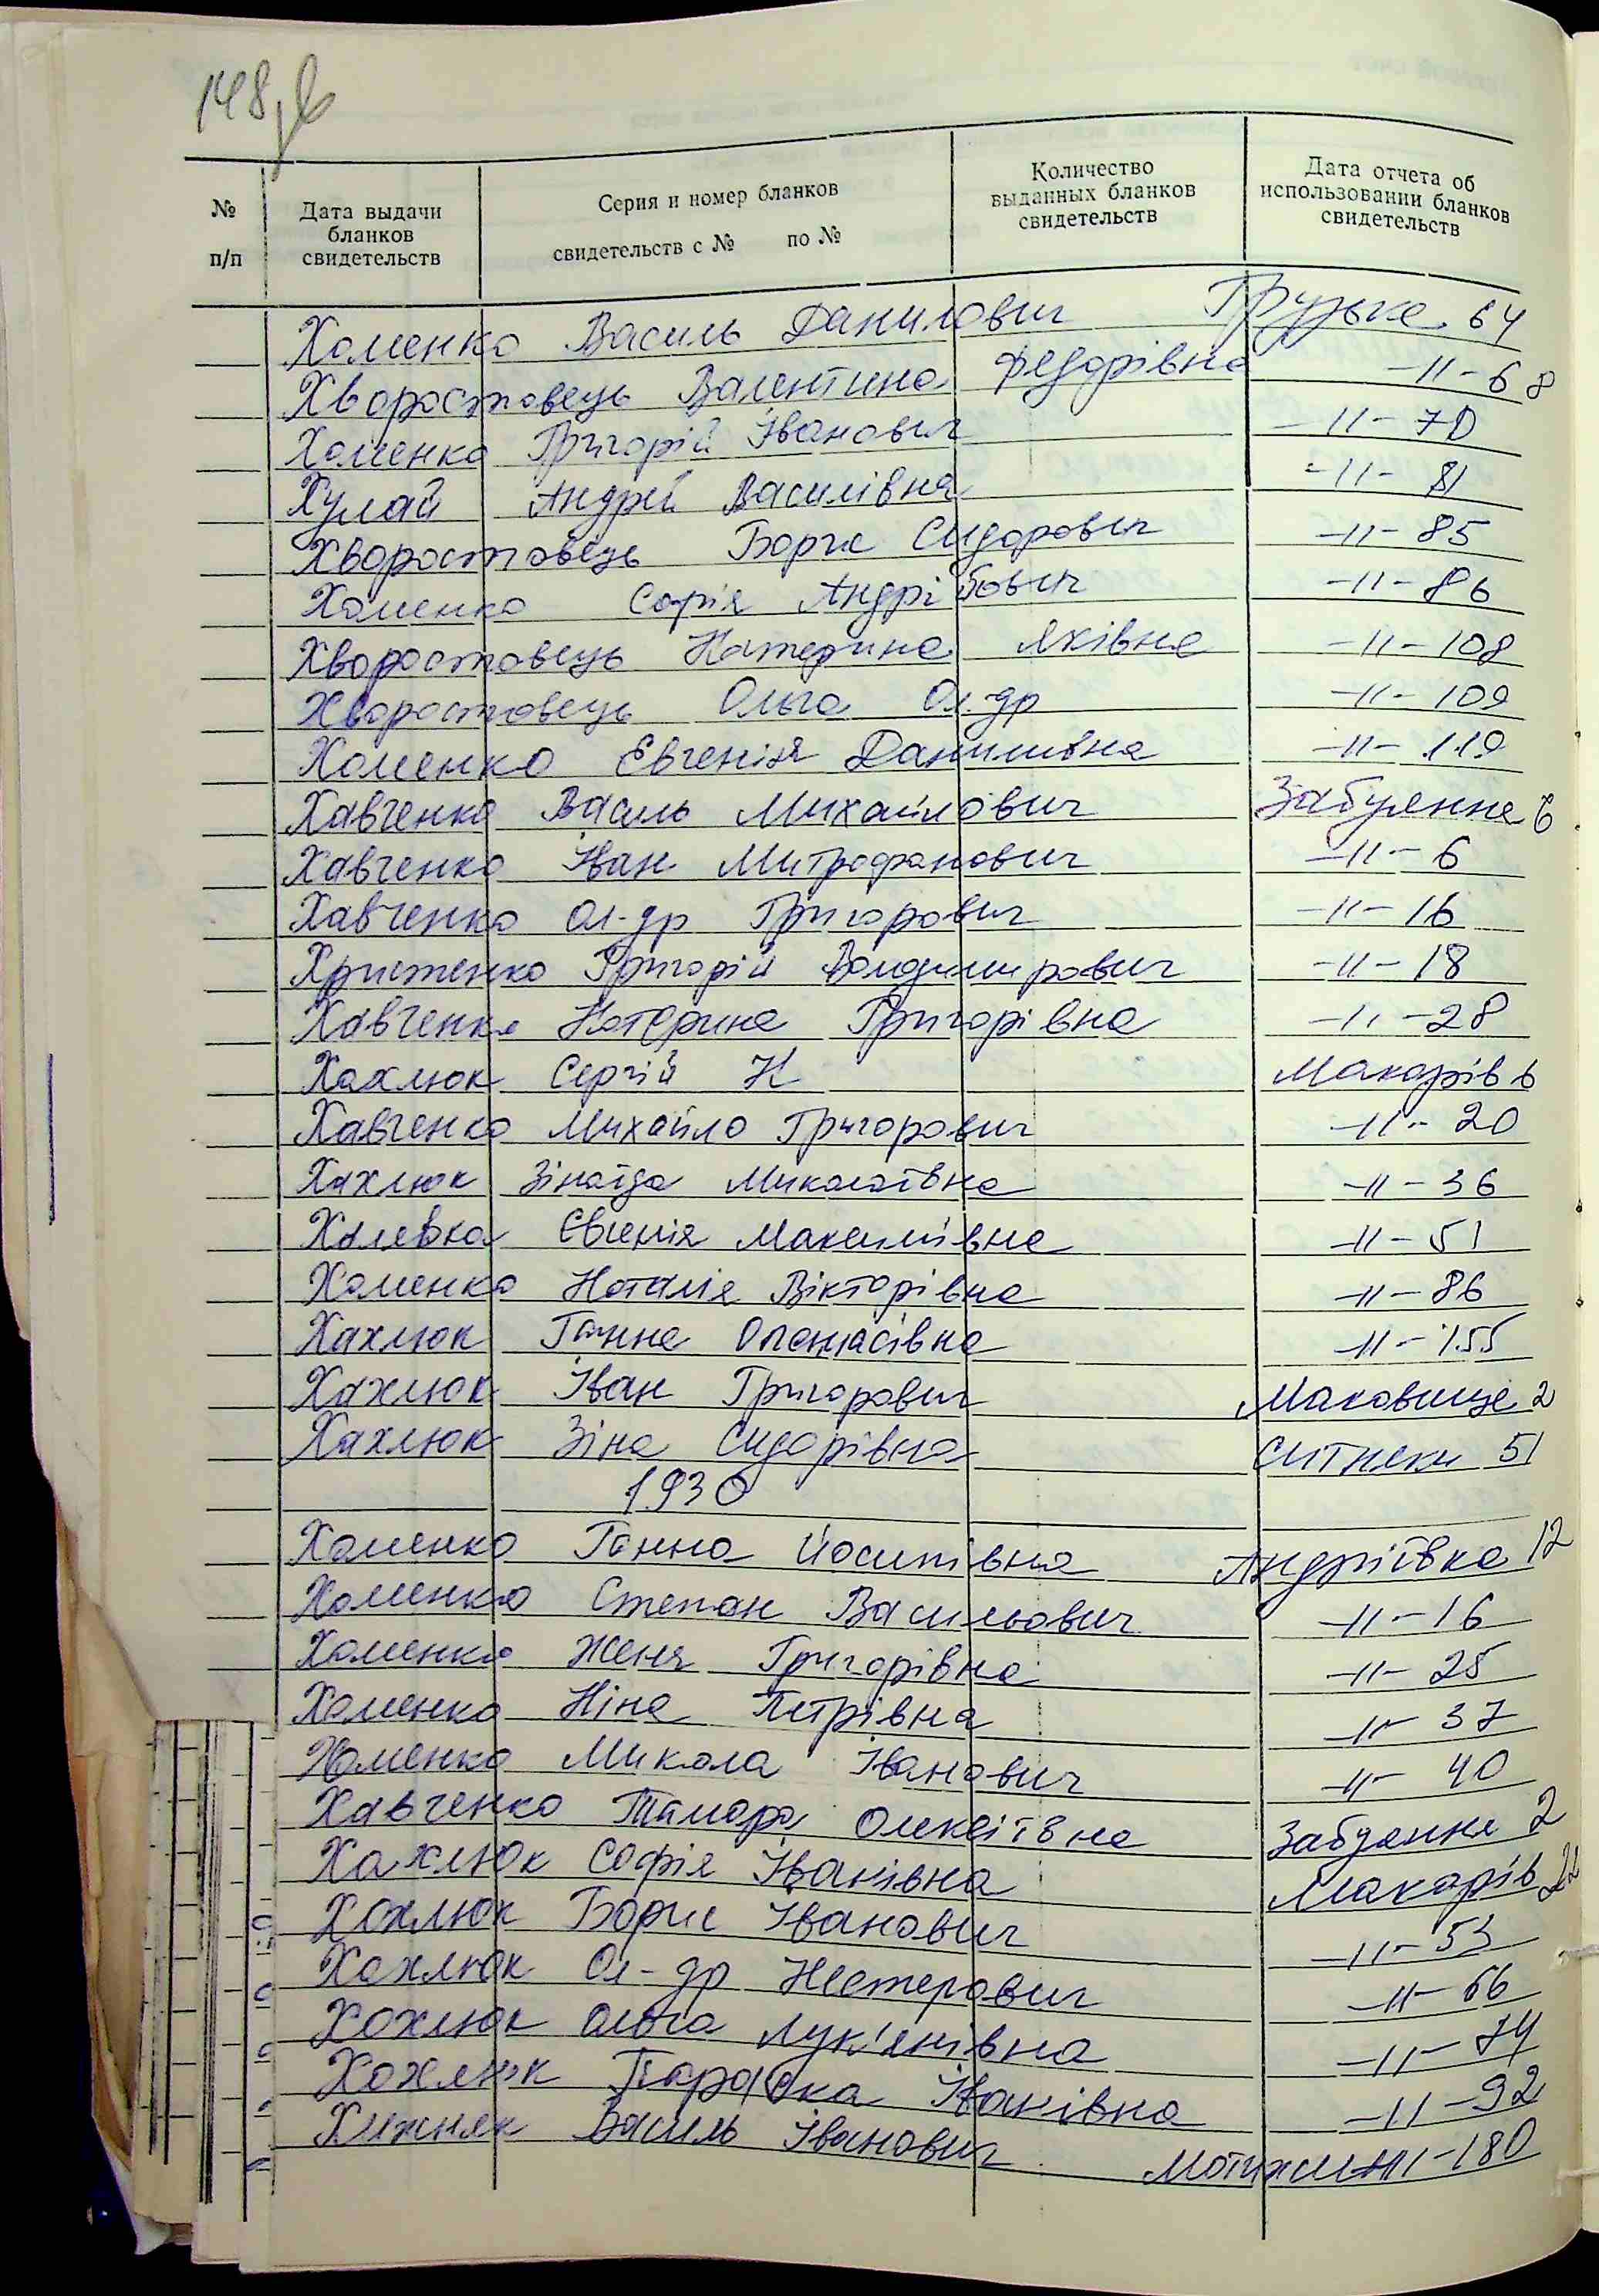 148
№ п/п
Дата выдачи бланков свидетельств
Серия и номер бланков свидетельств с № по №
Количество выданных бланков свидетельств
Дата отчета об использовании бланков свидетельств
Хоменко Василь Данилович Грузьке 64
Хворостовець Валентина Федорівна -11- 68
Хоменко Григорій Іванович -11- 70
Хулай Андрей Василівна -11- 81
Хворостовець Борис Сидорович -11- 85
Хоменко Софія Андрі -11- 86
Хворостовець Катерина Яківна -11- 108
Хворостовець Ольга Ол-др -11- 109
Хоменко Евгенія Данилівна -11- 119
Хавченко Василь Михайлович Забуяння 6
Хавченко Іван Митрофанович -11- 6
Хавченко Ол-др Григорович -11- 16
Христенко Григорій Володимирович -11- 18
Хавченко Катерина Григорівна -11- 28
Хахлюк Сергій К Макарів 6
Хавченко Михайло Григорович -11- 20
Хахлюк Зінаїда Миколаївна -11- 36
Халевка Євгенія Максимівна -11- 51
Хоменко Наталія Вікторівна -11- 86
Хахлюк Ганна Опанасівна -11- 155
Хахлюк Іван Григорович Маковище 2
Хахлюк Зіна Сидорівна Ситняки 51
1930
Хоменко Ганна Йосипівна Андріївка 12
Хоменко Степан Васильович -11- 16
Хоменко Женя Григорівна -11- 25
Хоменко Ніна Петрівна -11- 37
Хоменко Микола Іванович -11- 40
Хавченко Тамара Олексіївна Забуяння 2
Хахлюк Софія Іванівна Макарів 22
Хохлюк Борис Іванович -11- 53
Хохлюк Ол-др Нестерович -11- 66
Хохлюк Ольга Лук'янівна -11- 74
Хохлюк Параска Іванівна -11- 92
Хижняк Василь Іванович Мотижин -11- 180